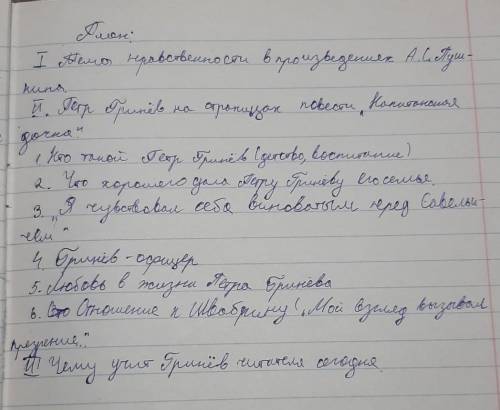 План:
I Тема нравственности в произведениях А.С. Пуш-
кина
II. Петр Гринёв на страницах повести „Капитанская
дочка"
1. Кто такой Петр Гринёв (детство, воспитание)
2. Что хорошего дала Петру Гринёву его семья.
3. „Я чувствовал себя виноватым перед Савельи-
чем"
4. Гринёв - офицер
5. Любовь в жизни Петра Гринёва
6. Отношение к Швабрину („Мой взгляд вызывал
презрение.."
III Чему учит Гринёв читателя сегодня.